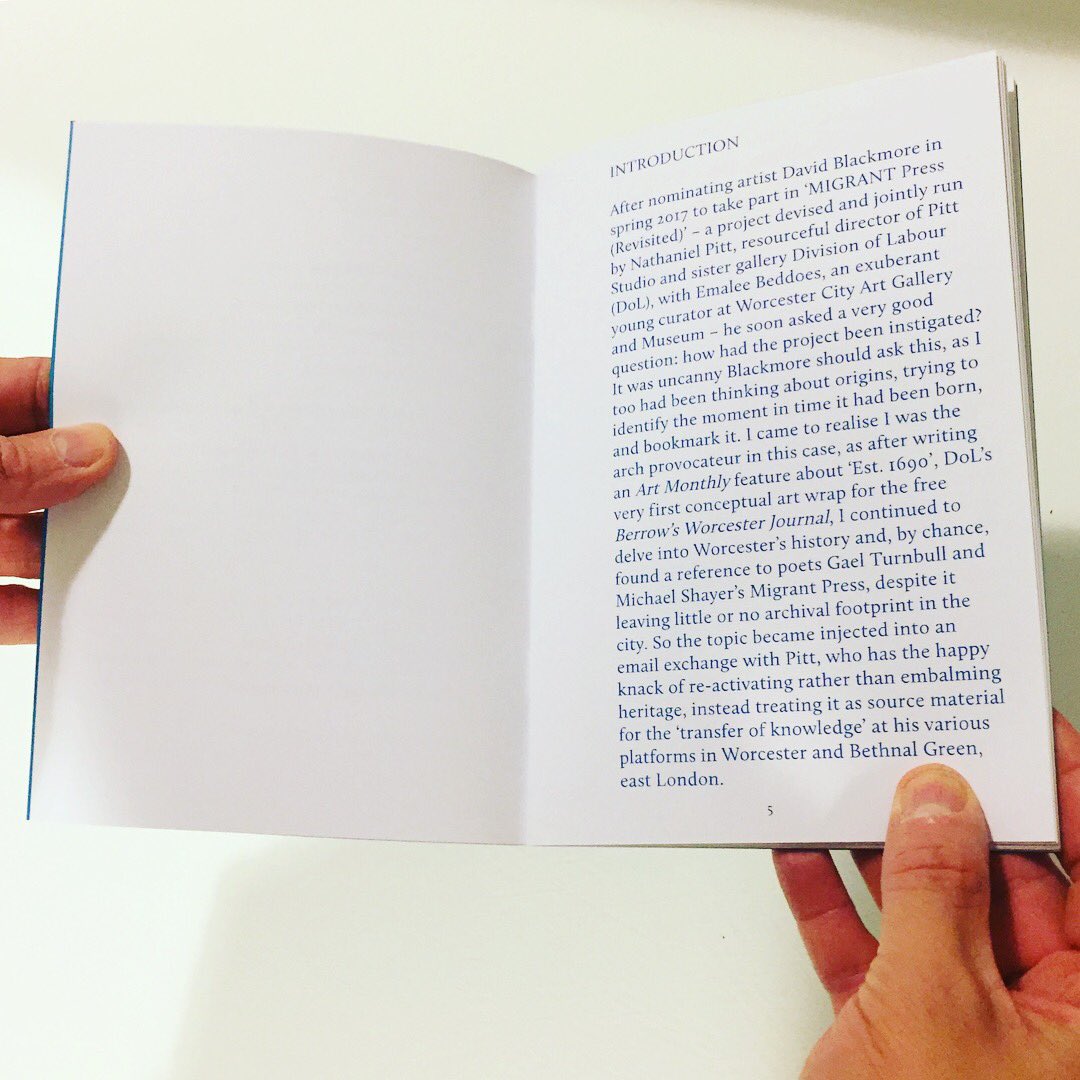 INTRODUCTION
After nominating artist David Blackmore in
spring 2017 to take part in ‘MIGRANT Press
(Revisited)’ – a project devised and jointly run
by Nathaniel Pitt, resourceful director of Pitt
Studio and sister gallery Division of Labour
(DoL), with Emalee Beddoes, an exuberant
young curator at Worcester City Art Gallery
and Museum – he soon asked a very good
question: how had the project been instigated?
It was uncanny Blackmore should ask this, as I
too had been thinking about origins, trying to
identify the moment in time it had been born,
and bookmark it. I came to realise I was the
arch provocateur in this case, as after writing
an Art Monthly feature about ‘Est. 1690’, DoL’s
very first conceptual art wrap for the free
Berrow’s Worcester Journal, I continued to
delve into Worcester’s history and, by chance,
found a reference to poets Gael Turnbull and
Michael Shayer’s Migrant Press, despite it
leaving little or no archival footprint in the
city. So the topic became injected into an
email exchange with Pitt, who has the happy
knack of re-activating rather than embalming
heritage, instead treating it as source material
for the ‘transfer of knowledge’ at his various
platforms in Worcester and Bethnal Green,
east London.
5